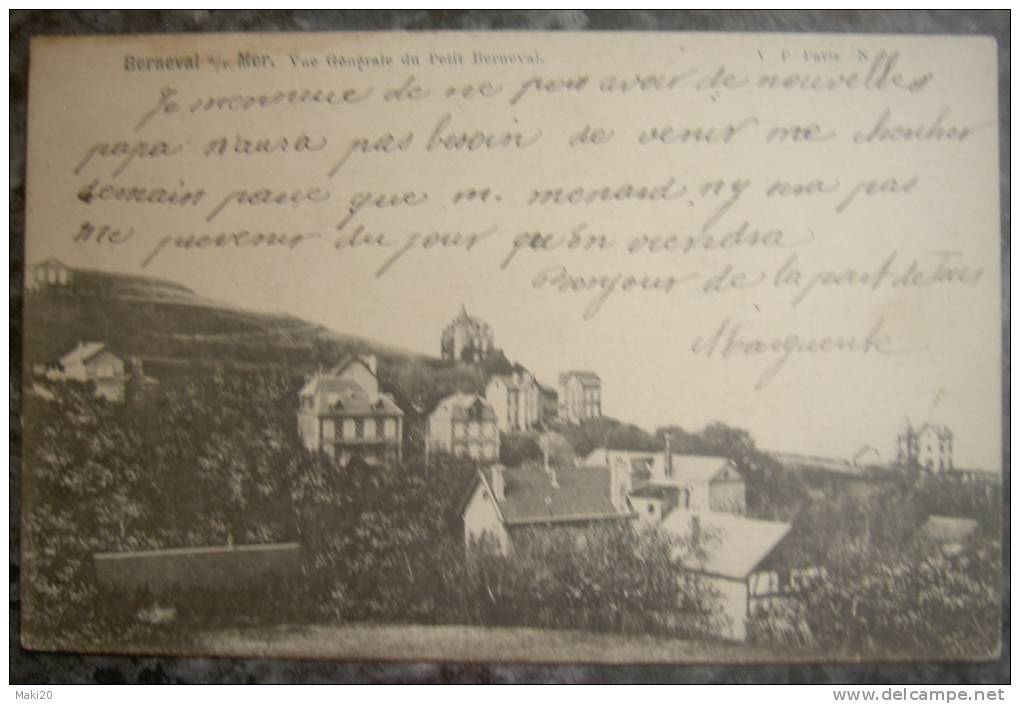 Berneval s/r. Mer. Vue Générale du Petit Berneval.
V. P. Paris. N
Je mennuie de ne pas avoir de nouvelles
papa n'aura pas besoin de venir me chercher
demain parce que m. menard ny sera pas
me prevenir du jour qu'on viendra
Bonjour de la part de Tous
Marguerite
Maki20
www.delcampe.net